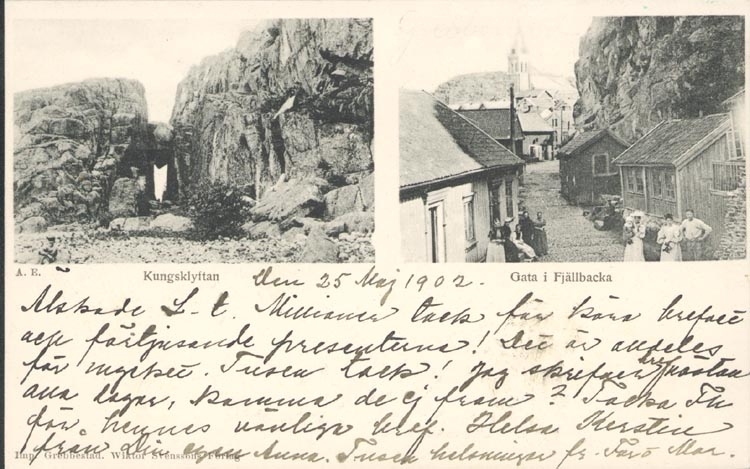 A. E. Kungsklyftan Gata i Fjällbacka
Den 25 Maj 1902.
Älskade L-t. Millioner tack för kära brefvet
och förtjusande presenterna! Det är
för mycket. Tusen tack! Jag skrifver nästan
alla dagar, komma de ej fram? Tacka Th
för hennes vänliga bref. Helsa Kerstin
från Din egen Anna. Tusen helsningar fr.
Imp. Grebbestad. Wiktor Svensson, Förlag